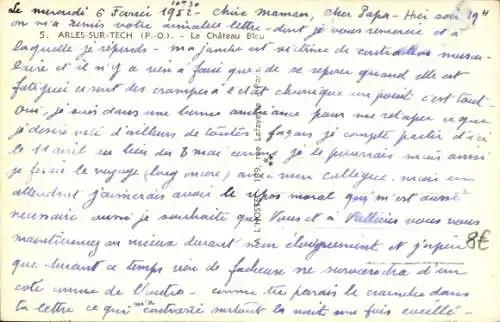 Le mercredi 6 Février 1952 - 10h30 Chère maman, cher Papa - Hier soir 19H
on m'a remis votre amicale lettre dont je vous remercie et à
5. ARLES-SUR-TECH (P.-O.). - Le Château Bleu
laquelle je réponds - ma jambe est de contraction muscu-
laire et il n'y a rien à faire que de se reposer quand elle est
fatiguée ce sont des crampes à l'état chronique un point c'est tout -
Oui, je suis dans une bonne ambiance pour me retaper ce que
je désire d'ailleurs de toutes façons je compte partir d'ici
le 11 avril au lieu du 8 mai comme je le pourrais mais ainsi
je ferai le voyage (long encore) avec mon collègue, mais en
attendant j'aimerais avoir le repos moral qui m'est aussi
nécessaire aussi je souhaite que Vous et à vous vous
mainteniez au mieux durant mon éloignement et j'espère
que durant ce temps rien de fâcheux ne surviendra d'un
côté comme de l'autre - comme tu parais le craindre dans
ta lettre ce qui m'a contrarié surtout la nuit une fois éveillé -
8€
L'HOSTE, 189, rue Lafayette, Paris